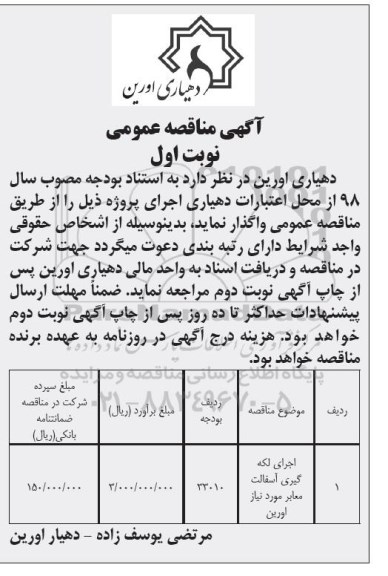 دهیاری اورین
آگهی مناقصه عمومی
نوبت اول
دهیاری اورین در نظر دارد به استناد بودجه مصوب سال
۹۸ از محل اعتبارات دهیاری اجرای پروژه ذیل را از طریق
مناقصه عمومی واگذار نماید، بدینوسیله از اشخاص حقوقی
واجد شرایط دارای رتبه بندی دعوت میگردد جهت شرکت
در مناقصه و دریافت اسناد به واحد مالی دهیاری اورین پس
از چاپ آگهی نوبت دوم مراجعه نماید. ضمناً مهلت ارسال
پیشنهادات حداکثر تا ده روز پس از چاپ آگهی نوبت دوم
خواهد بود. هزینه درج آگهی در روزنامه به عهده برنده
مناقصه خواهد بود.
پایگاه اطلاع رسانی مناقصه و مزایده
۰۲۱-۸۸۳۴۹۶۷۰-۵
ردیف
موضوع مناقصه
ردیف
بودجه
مبلغ برآورد (ریال)
مبلغ سپرده
شرکت در مناقصه
ضمانتنامه
بانکی(ریال)
۱
اجرای لکه
گیری آسفالت
معابر مورد نیاز
اورین
۳۳۰۱۰
۳/۰۰۰/۰۰۰/۰۰۰
۱۵۰/۰۰۰/۰۰۰
مرتضی یوسف زاده - دهیار اورین